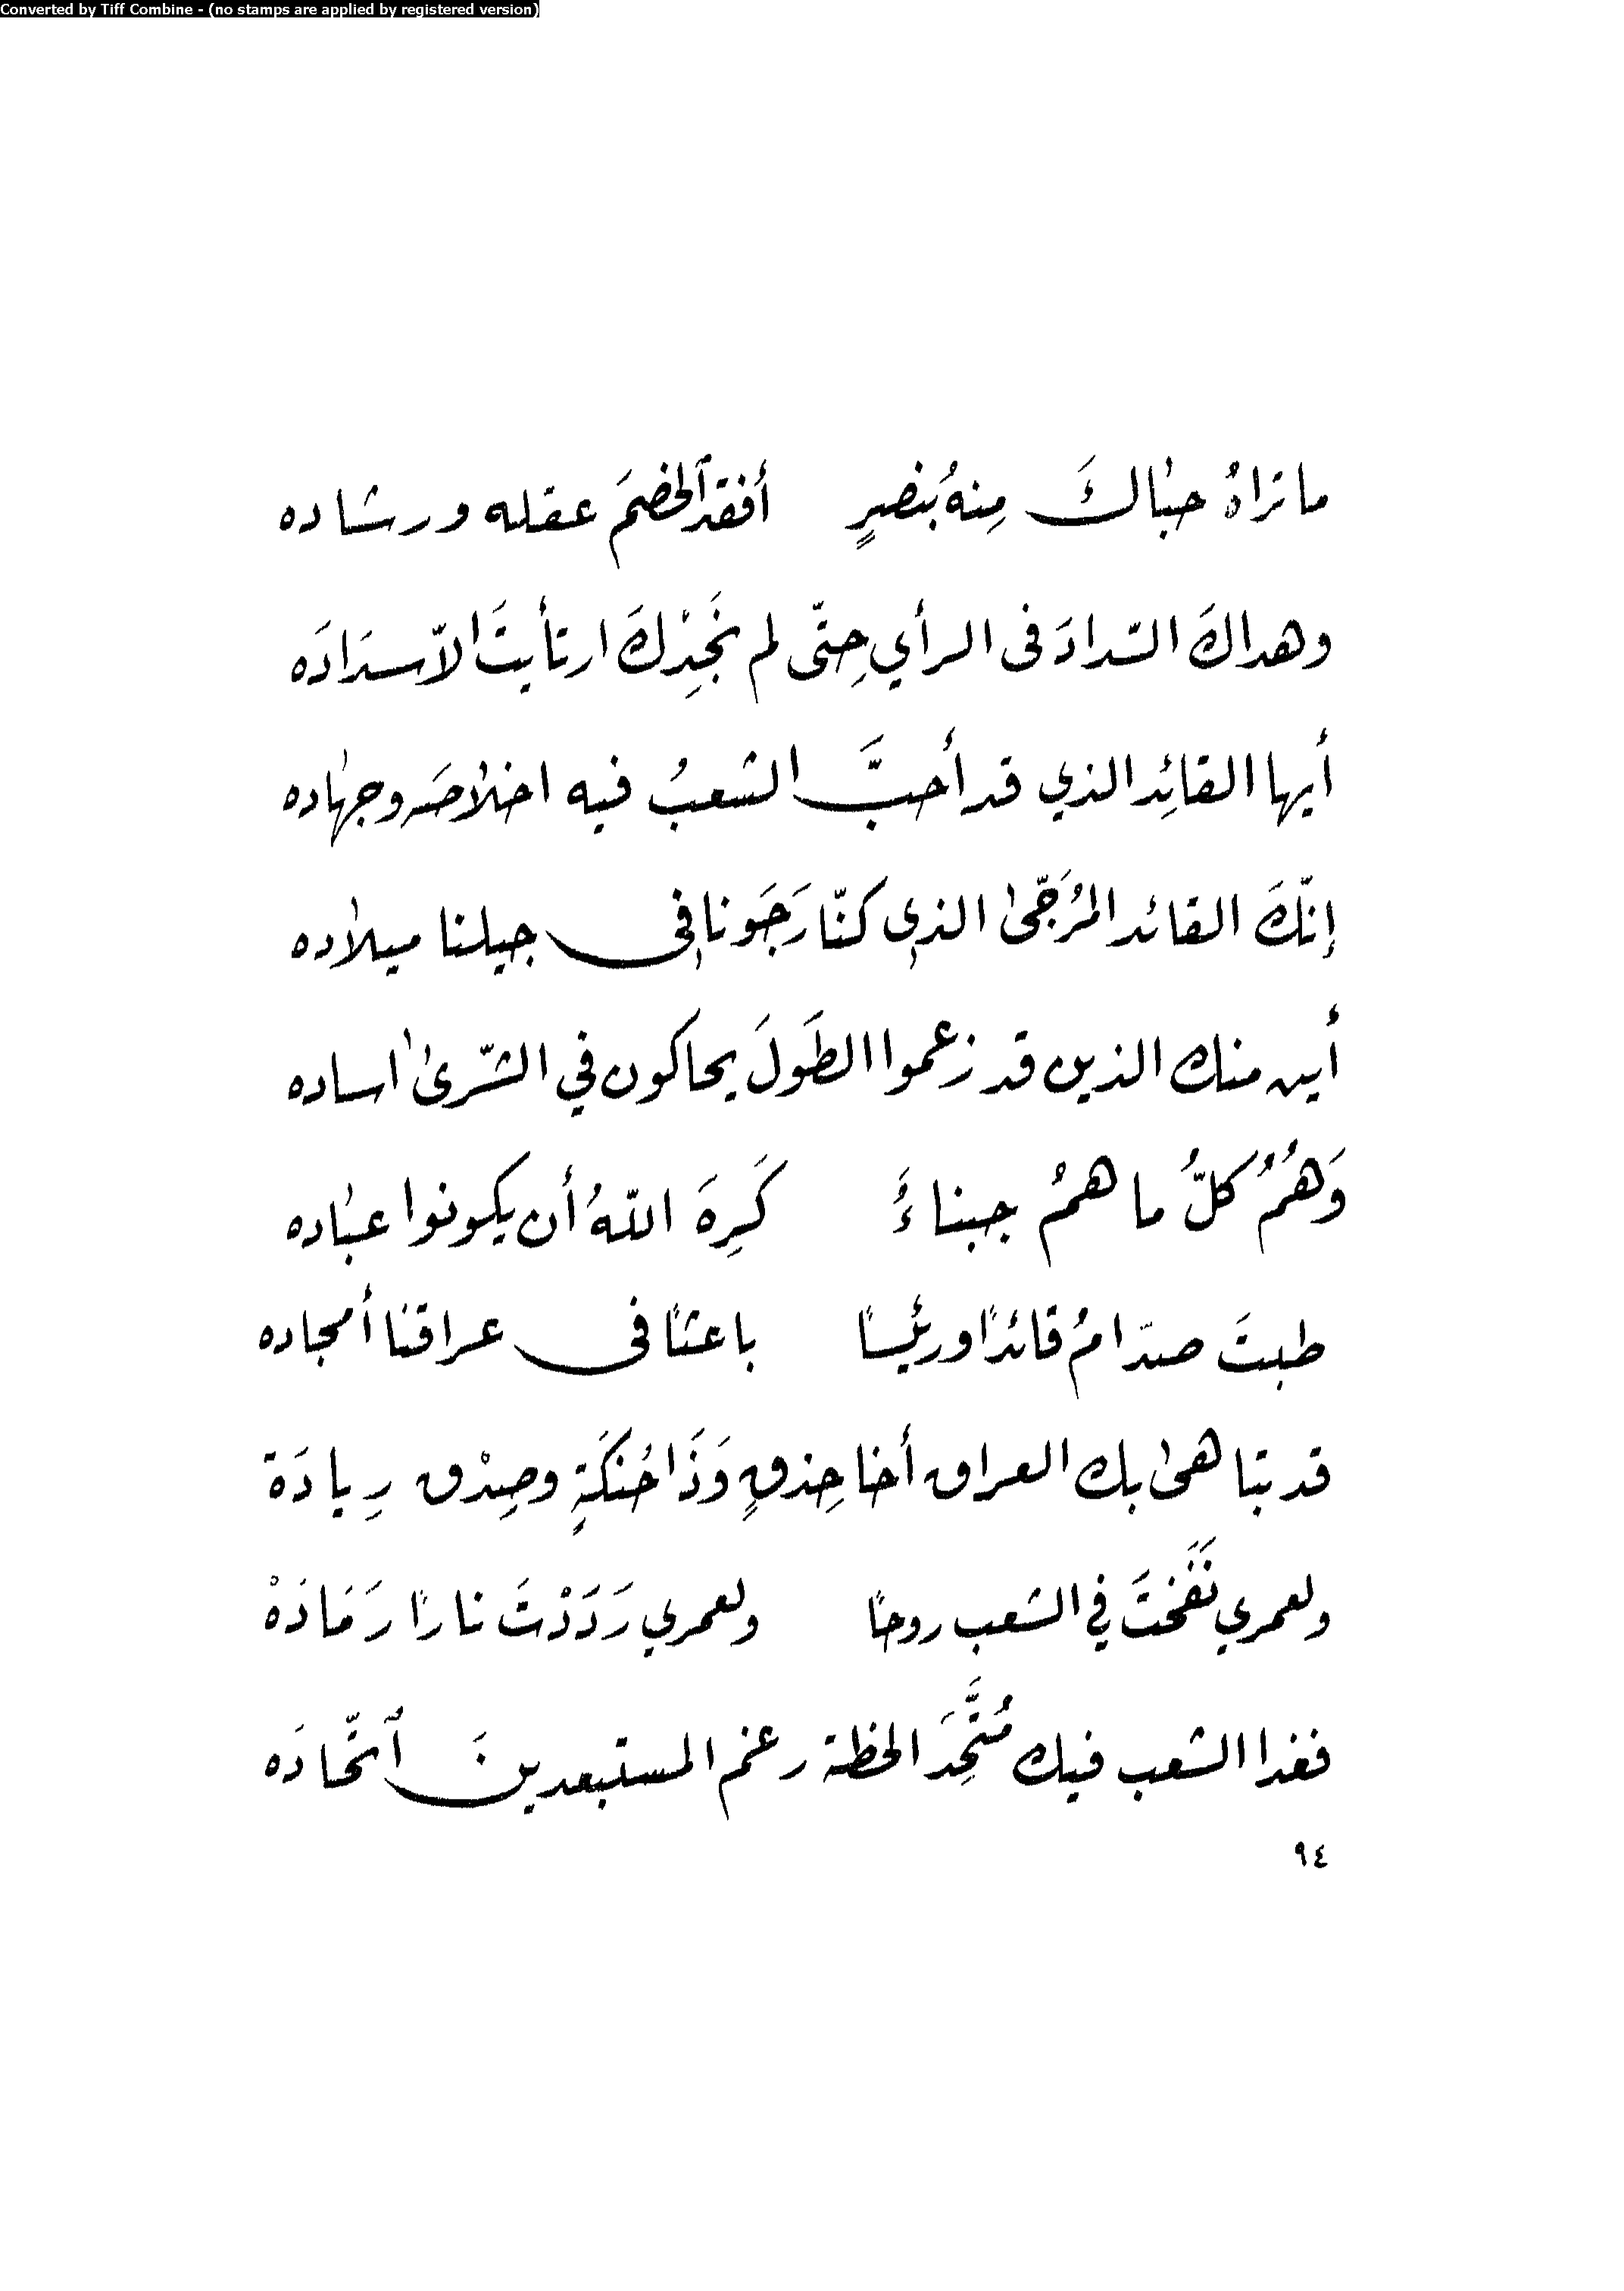 Converted by Tiff Combine - (no stamps are applied by registered version)
ما تراهُ حباكَ مِنهُ بنصرٍ أفقد ٱلخصمَ عقله ورشاده
وهداكَ السّدادَ في الرأي حِتّى لم نَجِدْكَ ارتأيتَ الاّ سدَادَه
أيها القائِد الذي قد أحبَّ الشعبُ فيه اخلاصَه وجهاده
إنّكَ القائد المُرَجّى الذي كنّا رَجَونا في جيلنا ميلاده
أين منك الذين قد زعموا الطَولَ يحاكون في الشّرى اساده
وَهُمُ كلُّ ما همُ جبناءٌ كَرِهَ اللّهُ أن يكونوا عباده
طبتَ صدّامُ قائدًا ورئيسًا باعثًا في عراقنا أمجاده
قد تباهى بك العراق أخا حِذقٍ وَذَا حُنكَةٍ وصِدْق رِيادَة
ولعمري نَفَختَ في الشعب روحًا ولعمري رَدَدْتَ نارًا رَمَادَهْ
فغدا الشعب فيك مُتَّحِدَ الخطة رغم المستبعدينَ ٱتّحادَه
٩٤